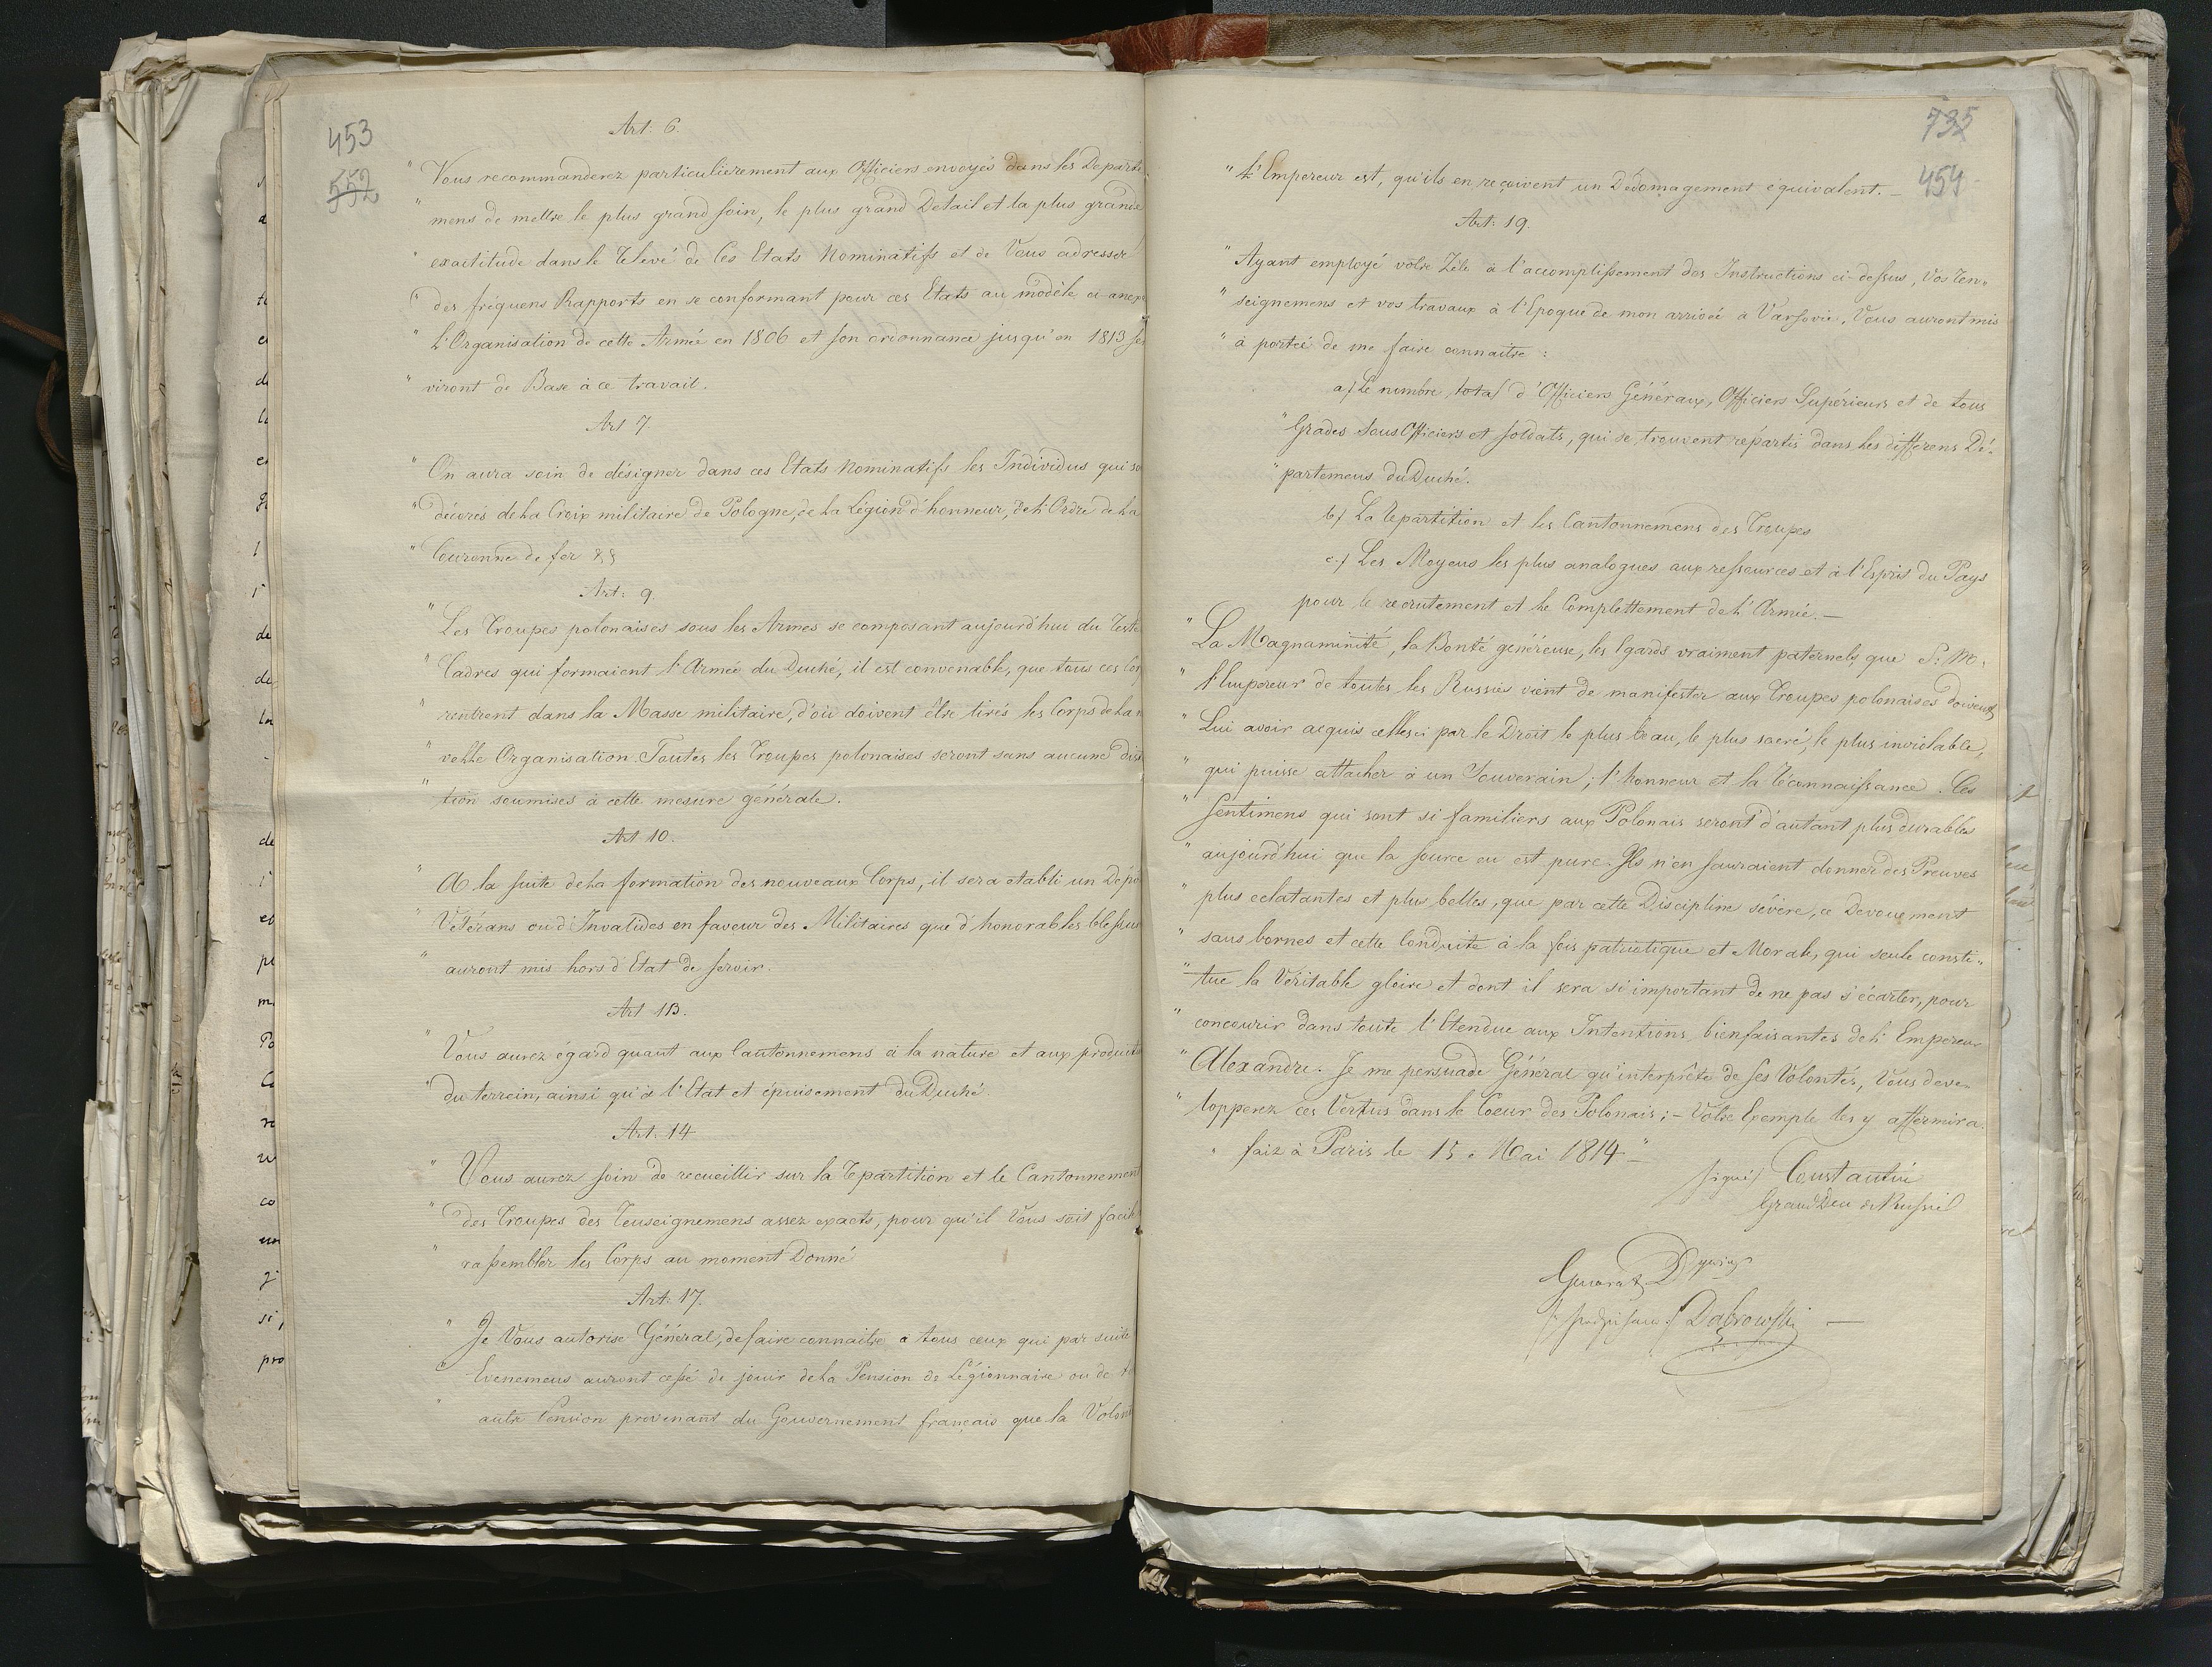 453
552
Art: 6.
" Vous recommanderez particulierement aux Officiers envoyés dans les Departe
" mens de mettre le plus grand soin, le plus grand Detail et la plus grande
" exactitude dans le Relevé de Ces Etats Nominatifs et de Vous adresser
" des fréquens Rapports en se conformant pour ces Etats au modèle ci-anex
" L'Organisation de cette Armée en 1806 et son ordonnance jusqu'en 1813 ser
" viront de Base à ce travail.
Art 7.
" On aura soin de désigner dans ces Etats Nominatifs les Individus qui so
" décorés de la Croix militaire de Pologne, de la Légion d'honneur, de l'Ordre de la
" Couronne de fer &&
Art: 9.
" Les Troupes polonaises sous les Armes se composant aujourd'hui du Reste
" Cadres qui formaient l'Armée du Duché, il est convenable, que tous ces Cor
" rentrent dans la Masse militaire, d'où doivent être tirés les Corps de la n
" velle Organisation. Toutes les Troupes polonaises seront sans aucune dis
" tion soumises à cette mesure générale.
Art 10.
" A la suite de la formation des nouveaux Corps, il sera etabli un Dépo
" Vétérans ou d'Invalides en faveur des Militaires que d'honorables blessur
" auront mis hors d'Etat de servir.
Art 13.
" Vous aurez égard quant aux Cantonnemens à la nature et aux produits
" du terrein, ainsi qu'à l'Etat et épuisement du Duché.
Art: 14
" Vous aurez soin de recueillir sur la Repartition et le Cantonnement
" des Troupes des Renseignemens assez exacts, pour qu'il Vous soit facile
" rassembler les Corps au moment Donné
Art: 17.
" Je Vous autorise Général, de faire connaitre a tous ceux qui par suite
" Evenemens auront cessé de jouir de la Pension de Légionnaire ou de t
" autre Pension provenant du Gouvernement français que la Volont
735
454
" L'Empereur est, qu'ils en reçoivent un Dédomagement équivalent. —
Art: 19.
" Ayant employé votre Zèle à l'accomplissement des Instructions ci-dessus, Vos Ren„
" seignemens et vos travaux à l'Epoque de mon arrivée à Varsovie, Vous auront mis
" à portée de me faire connaitre :
a/ Le nombre total d'Officiers Généraux, Officiers Supérieurs et de tous
" Grades Sous Officiers et soldats, qui se trouvent répartis dans les differens Dé„
" partemens du Duché.
b/ La Repartition et les Cantonnemens des Troupes
c/ Les Moyens les plus analogues aux ressources et à l'Esprit du Pays
pour le recrutement et le Complettement de l'Armée. —
" La Magnaminité, la Bonté généreuse, les Egards vraiment paternels, que S: M:
" l'Empereur de toutes les Russies vient de manifester aux Troupes polonaises doivent
" Lui avoir acquis celles-ci par le Droit le plus beau, le plus sacré, le plus inviolable,
" qui puisse attacher à un Souverain ; l'honneur et la Réconnaissance. Ces
" Sentimens qui sont si familiers aux Polonais seront d'autant plus durables
" aujourd'hui que la source en est pure. Ils n'en sauraient donner des Preuves
" plus eclatantes et plus belles, que par cette Discipline sévère, ce Devouement
" sans bornes et cette Conduite à la fois patriotique et Morale, qui seule consti„
" tue la Véritable gloire et dont il sera si important de ne pas s'écarter, pour
" concourir dans toute l'Etendue aux Intentions bienfaisantes de l'Empereur
" Alexandre. Je me persuade Général qu'interprète de ses Volontés, Vous deve„
" lopperez ces Vertus dans le Coeur des Polonais ; — Votre Exemple les y affermira.
" fait à Paris le 15. Mai 1814 " —
signé/ Constantin
Grand Duc de Russie
Dąbrowski —